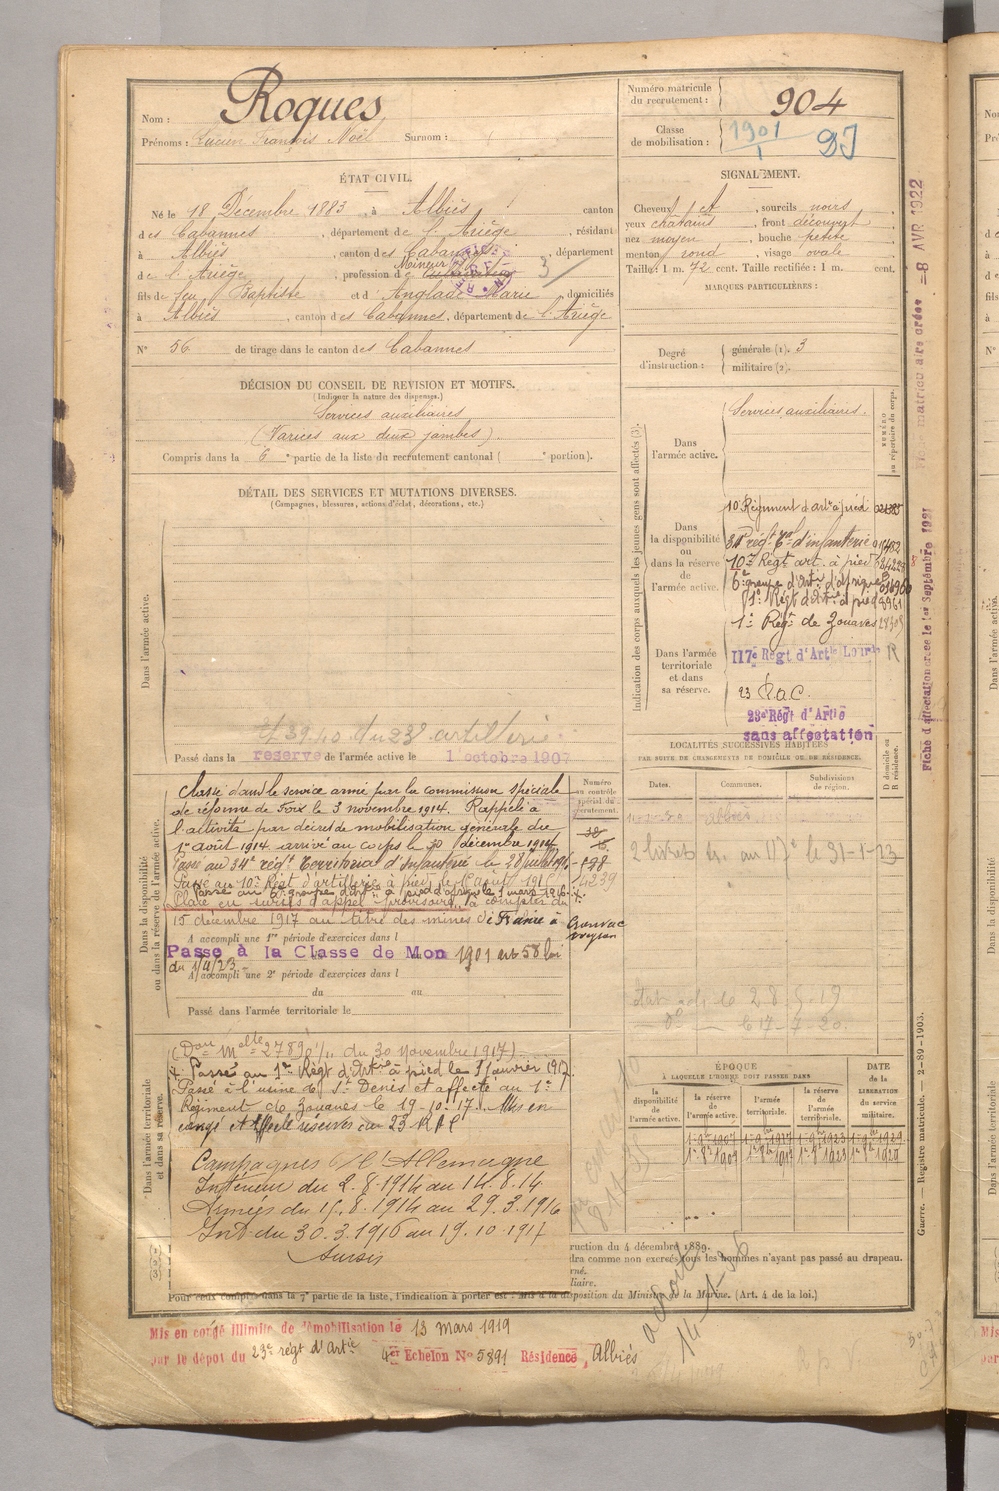 Nom : Roques
Prénoms : Lucien François Noël Surnom :
Numéro matricule du recrutement : 904
Classe de mobilisation : 1901
ÉTAT CIVIL.
Né le 18 Décembre 1883, à Albiès, canton
des Cabannes, département de l'Ariège, résidant
à Albiès, canton des Cabannes, département
de l'Ariège, profession de Mineur
fils de feu Baptiste et d' Anglade Marie, domiciliés
à Albiès, canton des Cabannes, département de l'Ariège
N° 56 de tirage dans le canton des Cabannes
SIGNALEMENT.
Cheveux et sourcils noirs
yeux châtains, front découvert
nez moyen, bouche petite
menton rond, visage ovale
Taille : 1 m. 72 cent. Taille rectifiée : 1 m. cent.
MARQUES PARTICULIÈRES :
Degré d'instruction : générale (1). 3
militaire (2).
DÉCISION DU CONSEIL DE REVISION ET MOTIFS.
(Indiquer la nature des dispenses.)
Services auxiliaires
(Varices aux deux jambes)
Compris dans la 6e partie de la liste du recrutement cantonal ( e portion).
DÉTAIL DES SERVICES ET MUTATIONS DIVERSES.
(Campagnes, blessures, actions d'éclat, décorations, etc.)
Dans l'armée active.
du 23e artillerie
Passé dans la réserve de l'armée active le 1 octobre 1907
Indication des corps auxquels les jeunes gens sont affectés (3).
NUMÉRO au répertoire du corps.
Dans l'armée active. Services auxiliaires.
Dans la disponibilité ou dans la réserve de l'armée active.
10e Régiment d'artie à pied
34e régt Tal d'infanterie
10e Régt art. à pied
6e groupe d'Artie d'Afrique
1e Régt d'Artie à pied
1e Régt de Zouaves
Dans l'armée territoriale et dans sa réserve.
117e Régt d'Artie Lourde
23 R.a.c.
23e Régt d'Artie
sans affectation
LOCALITÉS SUCCESSIVES HABITÉES
PAR SUITE DE CHANGEMENTS DE DOMICILE OU DE RÉSIDENCE.
Dates. Communes. Subdivisions de région. D domicile ou R résidence.
2 livret tr. au 117e le 31-1-23
le 28-5-19
do le 17-7-20.
Dans la disponibilité ou dans la réserve de l'armée active.
Numéro au contrôle spécial du recrutement.
Classé dans le service armé par la commission spéciale
de réforme de Foix le 3 novembre 1914. Rappelé à
l'activité par décret de mobilisation générale du
1er août 1914. arrivé au corps le 30 décembre 1914
Passé au 34e régt Territorial d'Infanterie le 28 juillet 1915
Passé au 10e Régt d'artillerie à pied le 1 août 1915
Passé au 6e groupe d'artie à pied d'Afrique le 1 mars 1916
Placé en sursis d'appel provisoire, à compter du
15 décembre 1917 au titre des mines de France à Cransac
Aveyron
A accompli une 1re période d'exercices dans l
Passé à la Classe de Mob 1901 art 58 loi
du 1/4/23
A accompli une 2e période d'exercices dans l
du au
Passé dans l'armée territoriale le
Dans l'armée territoriale et dans sa réserve.
du 30 novembre 1917)
Passé au 1er Régt d'Artie à pied le 1 janvier 1917
Passé à l'usine de St Denis et affecté au 1er
Régiment de Zouaves le 19-10-17. Mis en
congé et affecté réserves au 23 RAC
Campagnes c/ l'Allemagne
Intérieur du 2.8.1914 au 14.8.14
Armées du 15.8.1914 au 29.3.1916
Int. du 30.3.1916 au 19.10.1917
Sursis
ÉPOQUE
À LAQUELLE L'HOMME DOIT PASSER DANS
DATE de la LIBÉRATION du service militaire.
la disponibilité de l'armée active. la réserve de l'armée active. l'armée territoriale. la réserve de l'armée territoriale.
ruction du 4 décembre 1889.
dra comme non exercés tous les hommes n'ayant pas passé au drapeau.
Pour ceux compris dans la 7e partie de la liste, l'indication à porter est : Mis à la disposition du Ministre de la Marine. (Art. 4 de la loi.)
Mis en congé illimité de démobilisation le 13 mars 1919
par le dépôt du 23e régt d'Artie 4e Echelon N° 5891 Résidence, Albiès
Guerre. — Registre matricule. — 2-89-1903.
Fiche matriculaire créée — 8 AVR 1922
Fiche d'affectation créée le 1er Septembre 1921